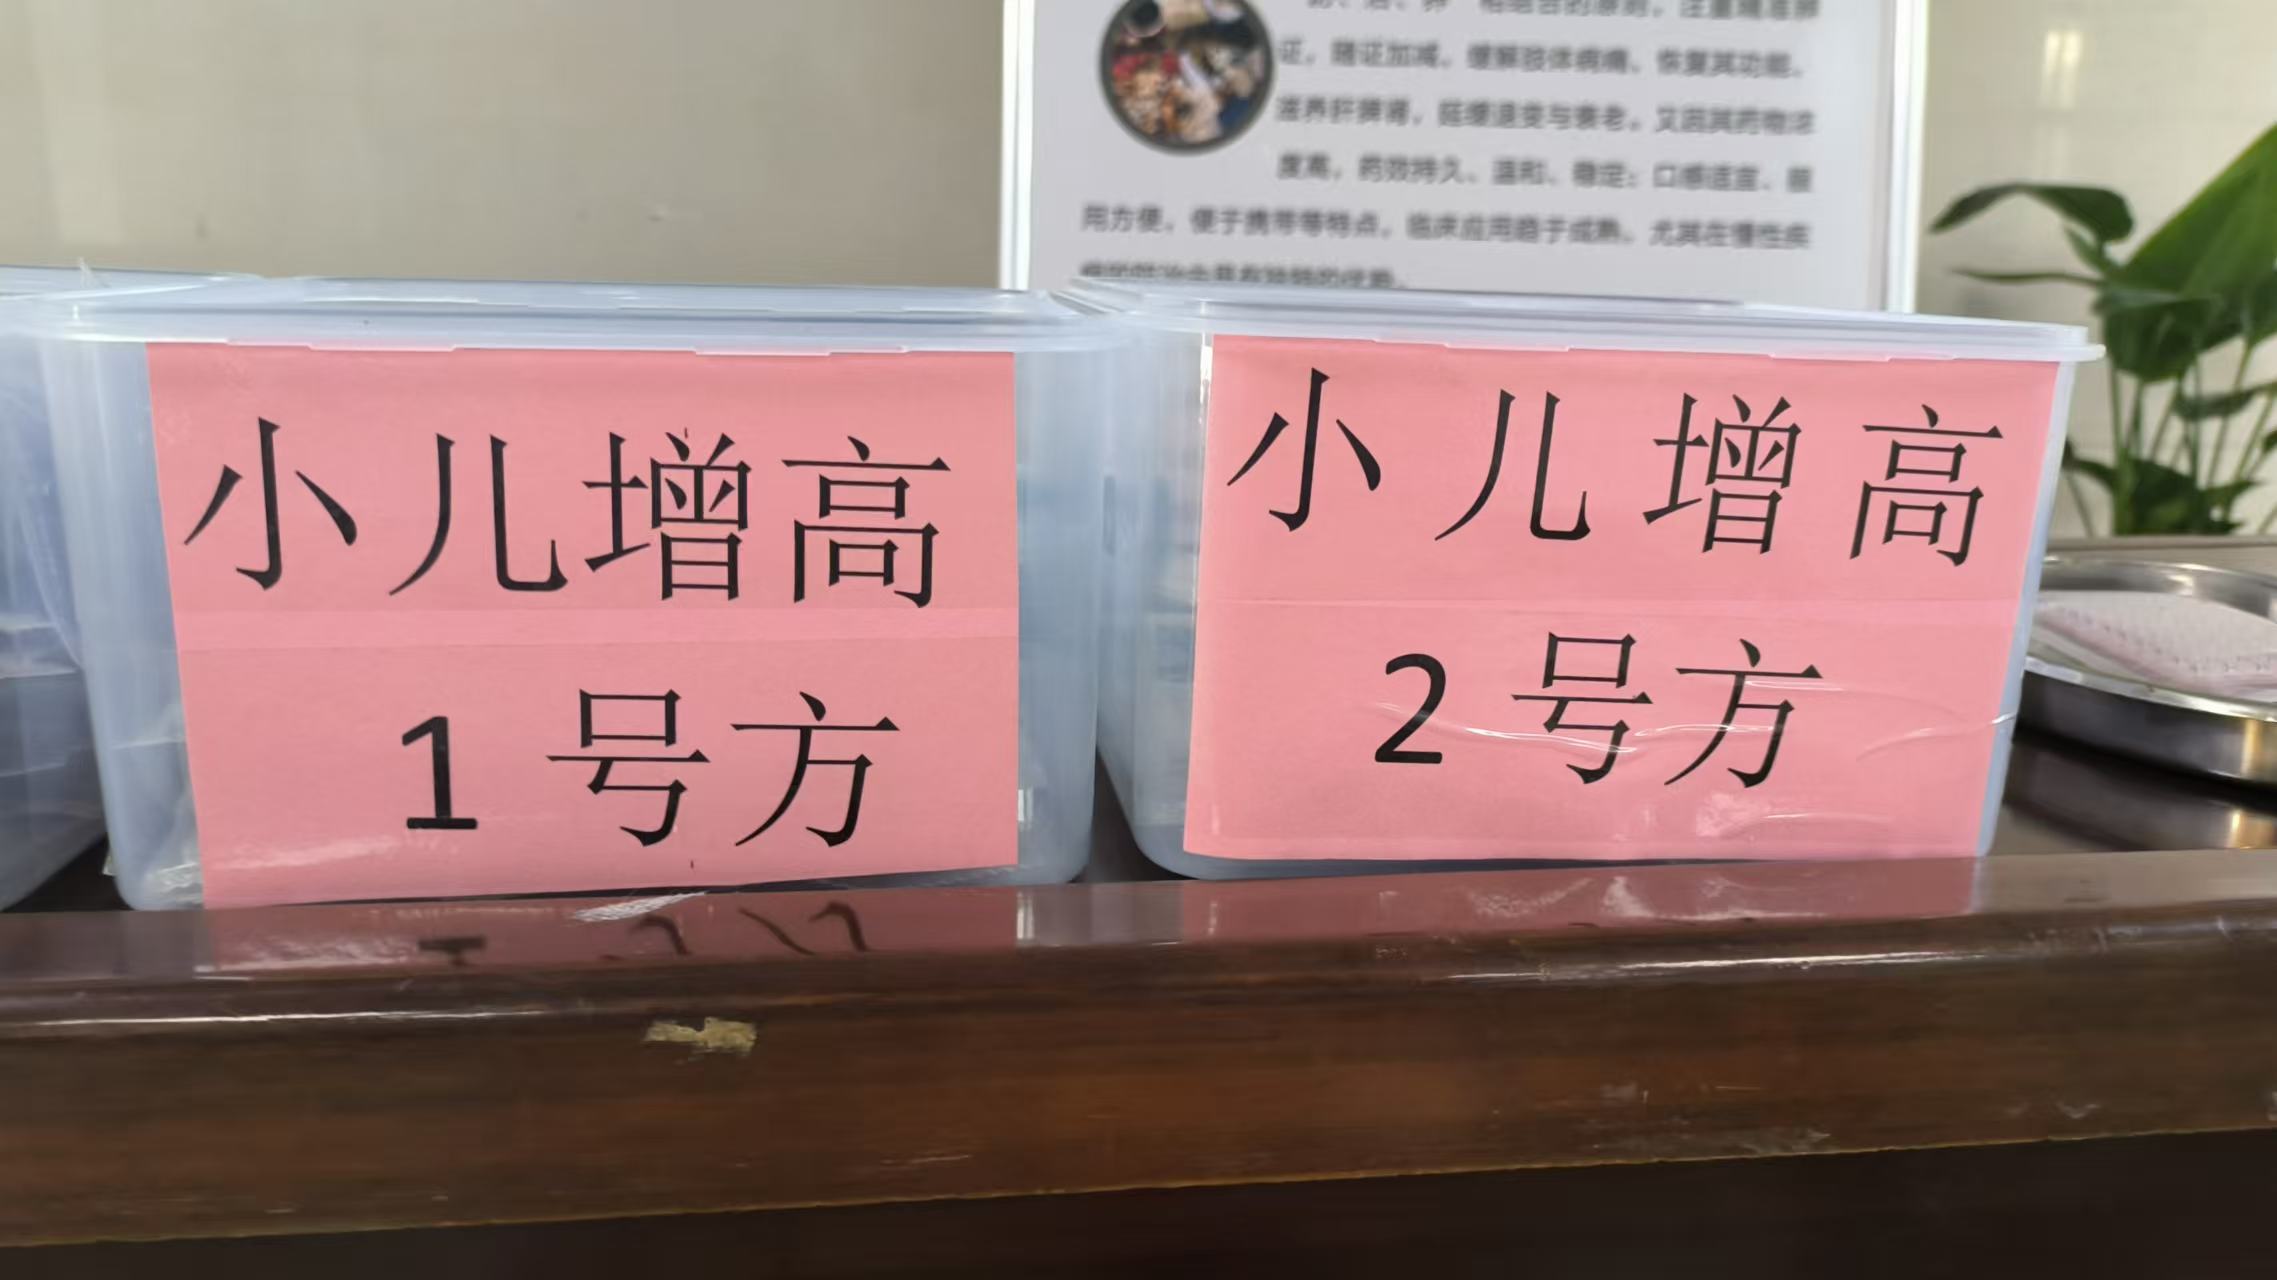 证，随证加减，缓解肢体病痛，恢复其功能，
滋养肝脾肾，延缓退变与衰老。又因其药物浓
度高，药效持久、温和、稳定；口感适宜、服
用方便，便于携带等特点，临床应用趋于成熟。尤其在慢性疾
小儿增高
1号方
小儿增高
2号方